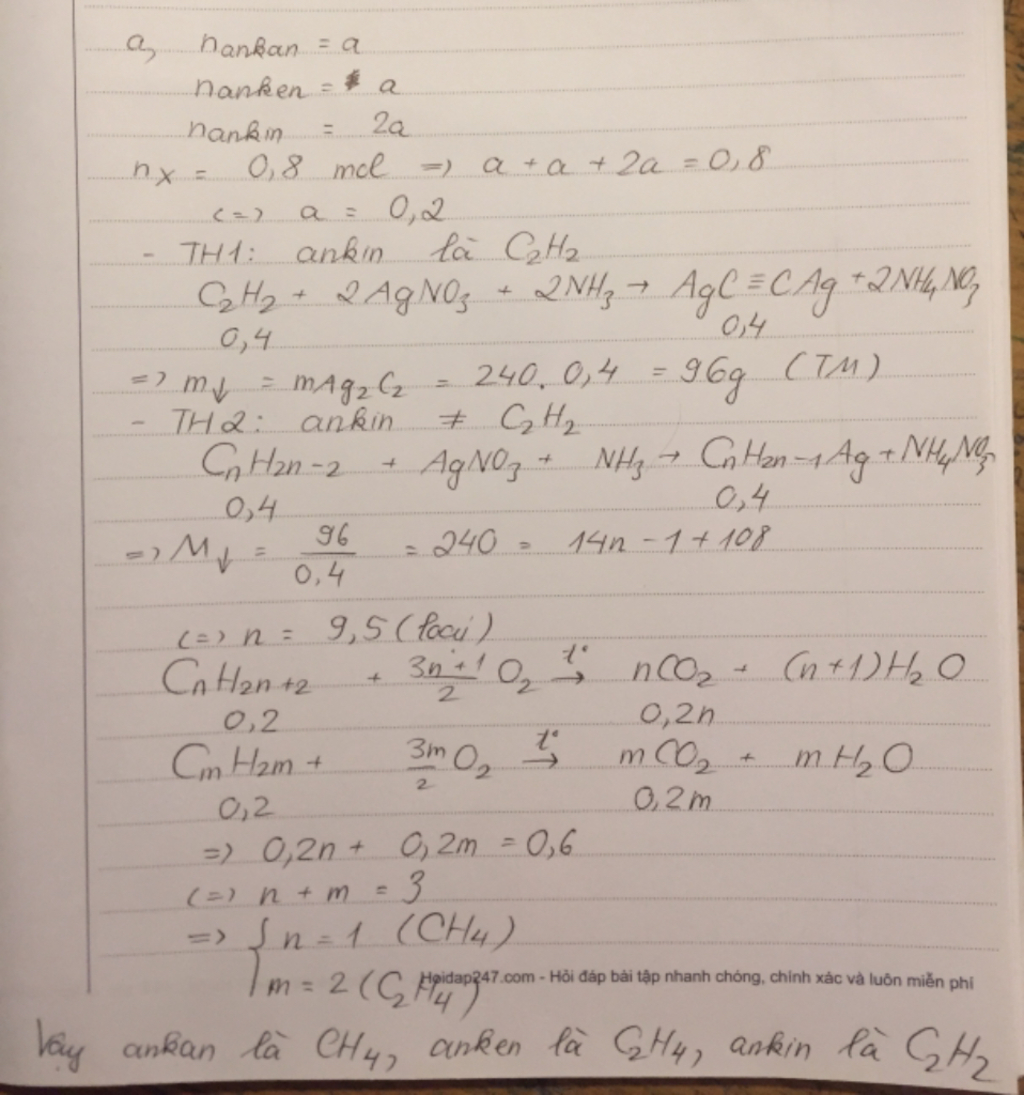 a, nankan = a
nanken = a
nankin = 2a
nX = 0,8 mol => a + a + 2a = 0,8
<=> a = 0,2
- TH1: ankin là C2H2
C2H2 + 2AgNO3 + 2NH3 → AgC≡CAg + 2NH4NO3
0,4 0,4
=> m↓ = mAg2C2 = 240. 0,4 = 96g (TM)
- TH2: ankin ≠ C2H2
CnH2n-2 + AgNO3 + NH3 → CnH2n-1Ag + NH4NO3
0,4 0,4
=> M↓ = 96/0,4 = 240 = 14n - 1 + 108
(=) n = 9,5 (loại)
CnH2n+2 + 3n+1/2 O2 t°→ nCO2 + (n+1)H2O
0,2 0,2n
CmH2m + 3m/2 O2 t°→ mCO2 + mH2O
0,2 0,2m
=> 0,2n + 0,2m = 0,6
(=) n + m = 3
=> { n = 1 (CH4)
m = 2 (C2H4)
Hoidap247.com - Hỏi đáp bài tập nhanh chóng, chính xác và luôn miễn phí
Vậy ankan là CH4, anken là C2H4, ankin là C2H2